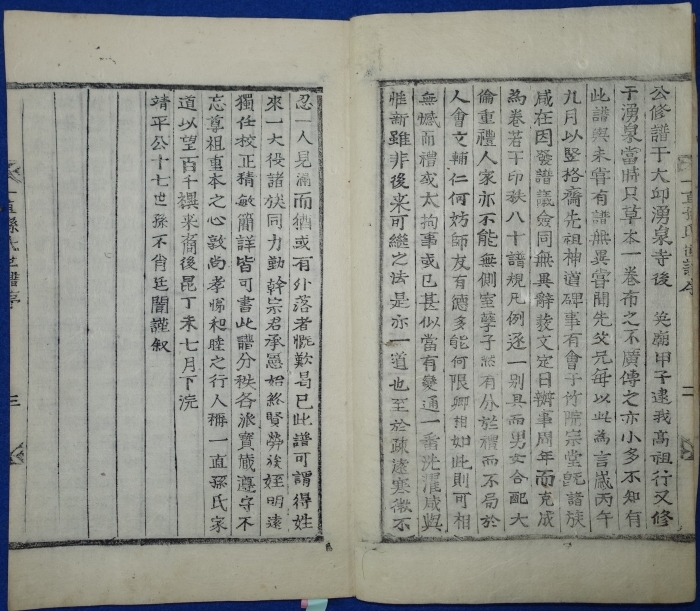 公修譜于大邱湧泉寺後 英廟甲子逮我高祖行又修
于湧泉當時只草本一卷布之不廣傳之亦小多不知有
此譜與未嘗有譜無異嘗聞先父兄每以此爲言歲丙午
九月以竪格齋先祖神道碑事有會于竹院宗堂旣諸族
咸在因發譜議僉同無異辭茇文定日辦事周年而克成
爲卷若干印秩八十譜規凡例逐一別具而男女合配大
倫重禮人家亦不能無側室孽子然有分於禮而不局於
人會文輔仁何妨師友有德多能何限卿相如此則可相
無憾而禮或太拘事或已甚似當有變通一番洗濯咸與
惟新雖非後來可繼之法是亦一道也至於疎遠寒微不
忍一人見漏而猶或有外落者慨歎曷已此譜可謂得姓
來一大役諸族同力勤幹宗君承愚始終賢勞族姪明遠
獨任校正精敏簡詳皆可書此譜分秩各派寶藏遵守不
忘尊祖重本之心敦尙孝悌和睦之行人稱一直孫氏家
道以望百千禩來裔後昆丁未七月下浣
靖平公十七世孫不肖廷誾謹叙
一直孫氏世譜序
三